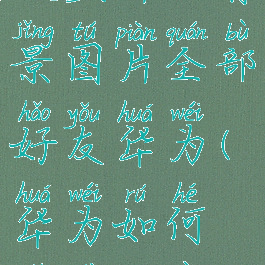 jǐng tú piàn quán bù
景图片全部
hǎo yǒu huá wéi
好友华为(
huá wéi rú hé
华为如何